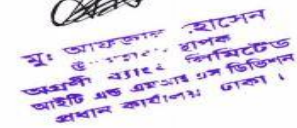 মুঃ আফজাল হোসেন
ব্যবস্থাপক
অগ্রণী ব্যাংক লিমিটেড
আইটি এন্ড এমআইএস ডিভিশন
প্রধান কার্যালয়, ঢাকা ।